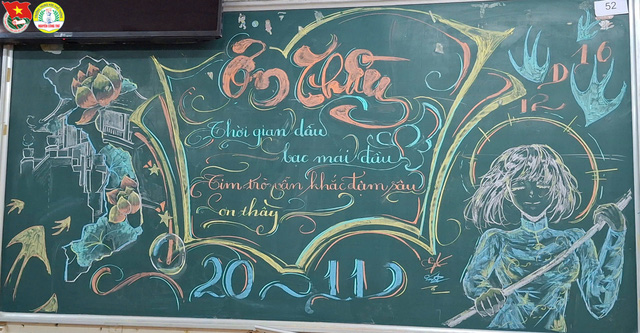 52
Ơn Thầy
Thời gian dẫu
bạc mái đầu
Tim trò vẫn khắc đậm sâu
ơn thầy
20 ~ 11
16
D
12